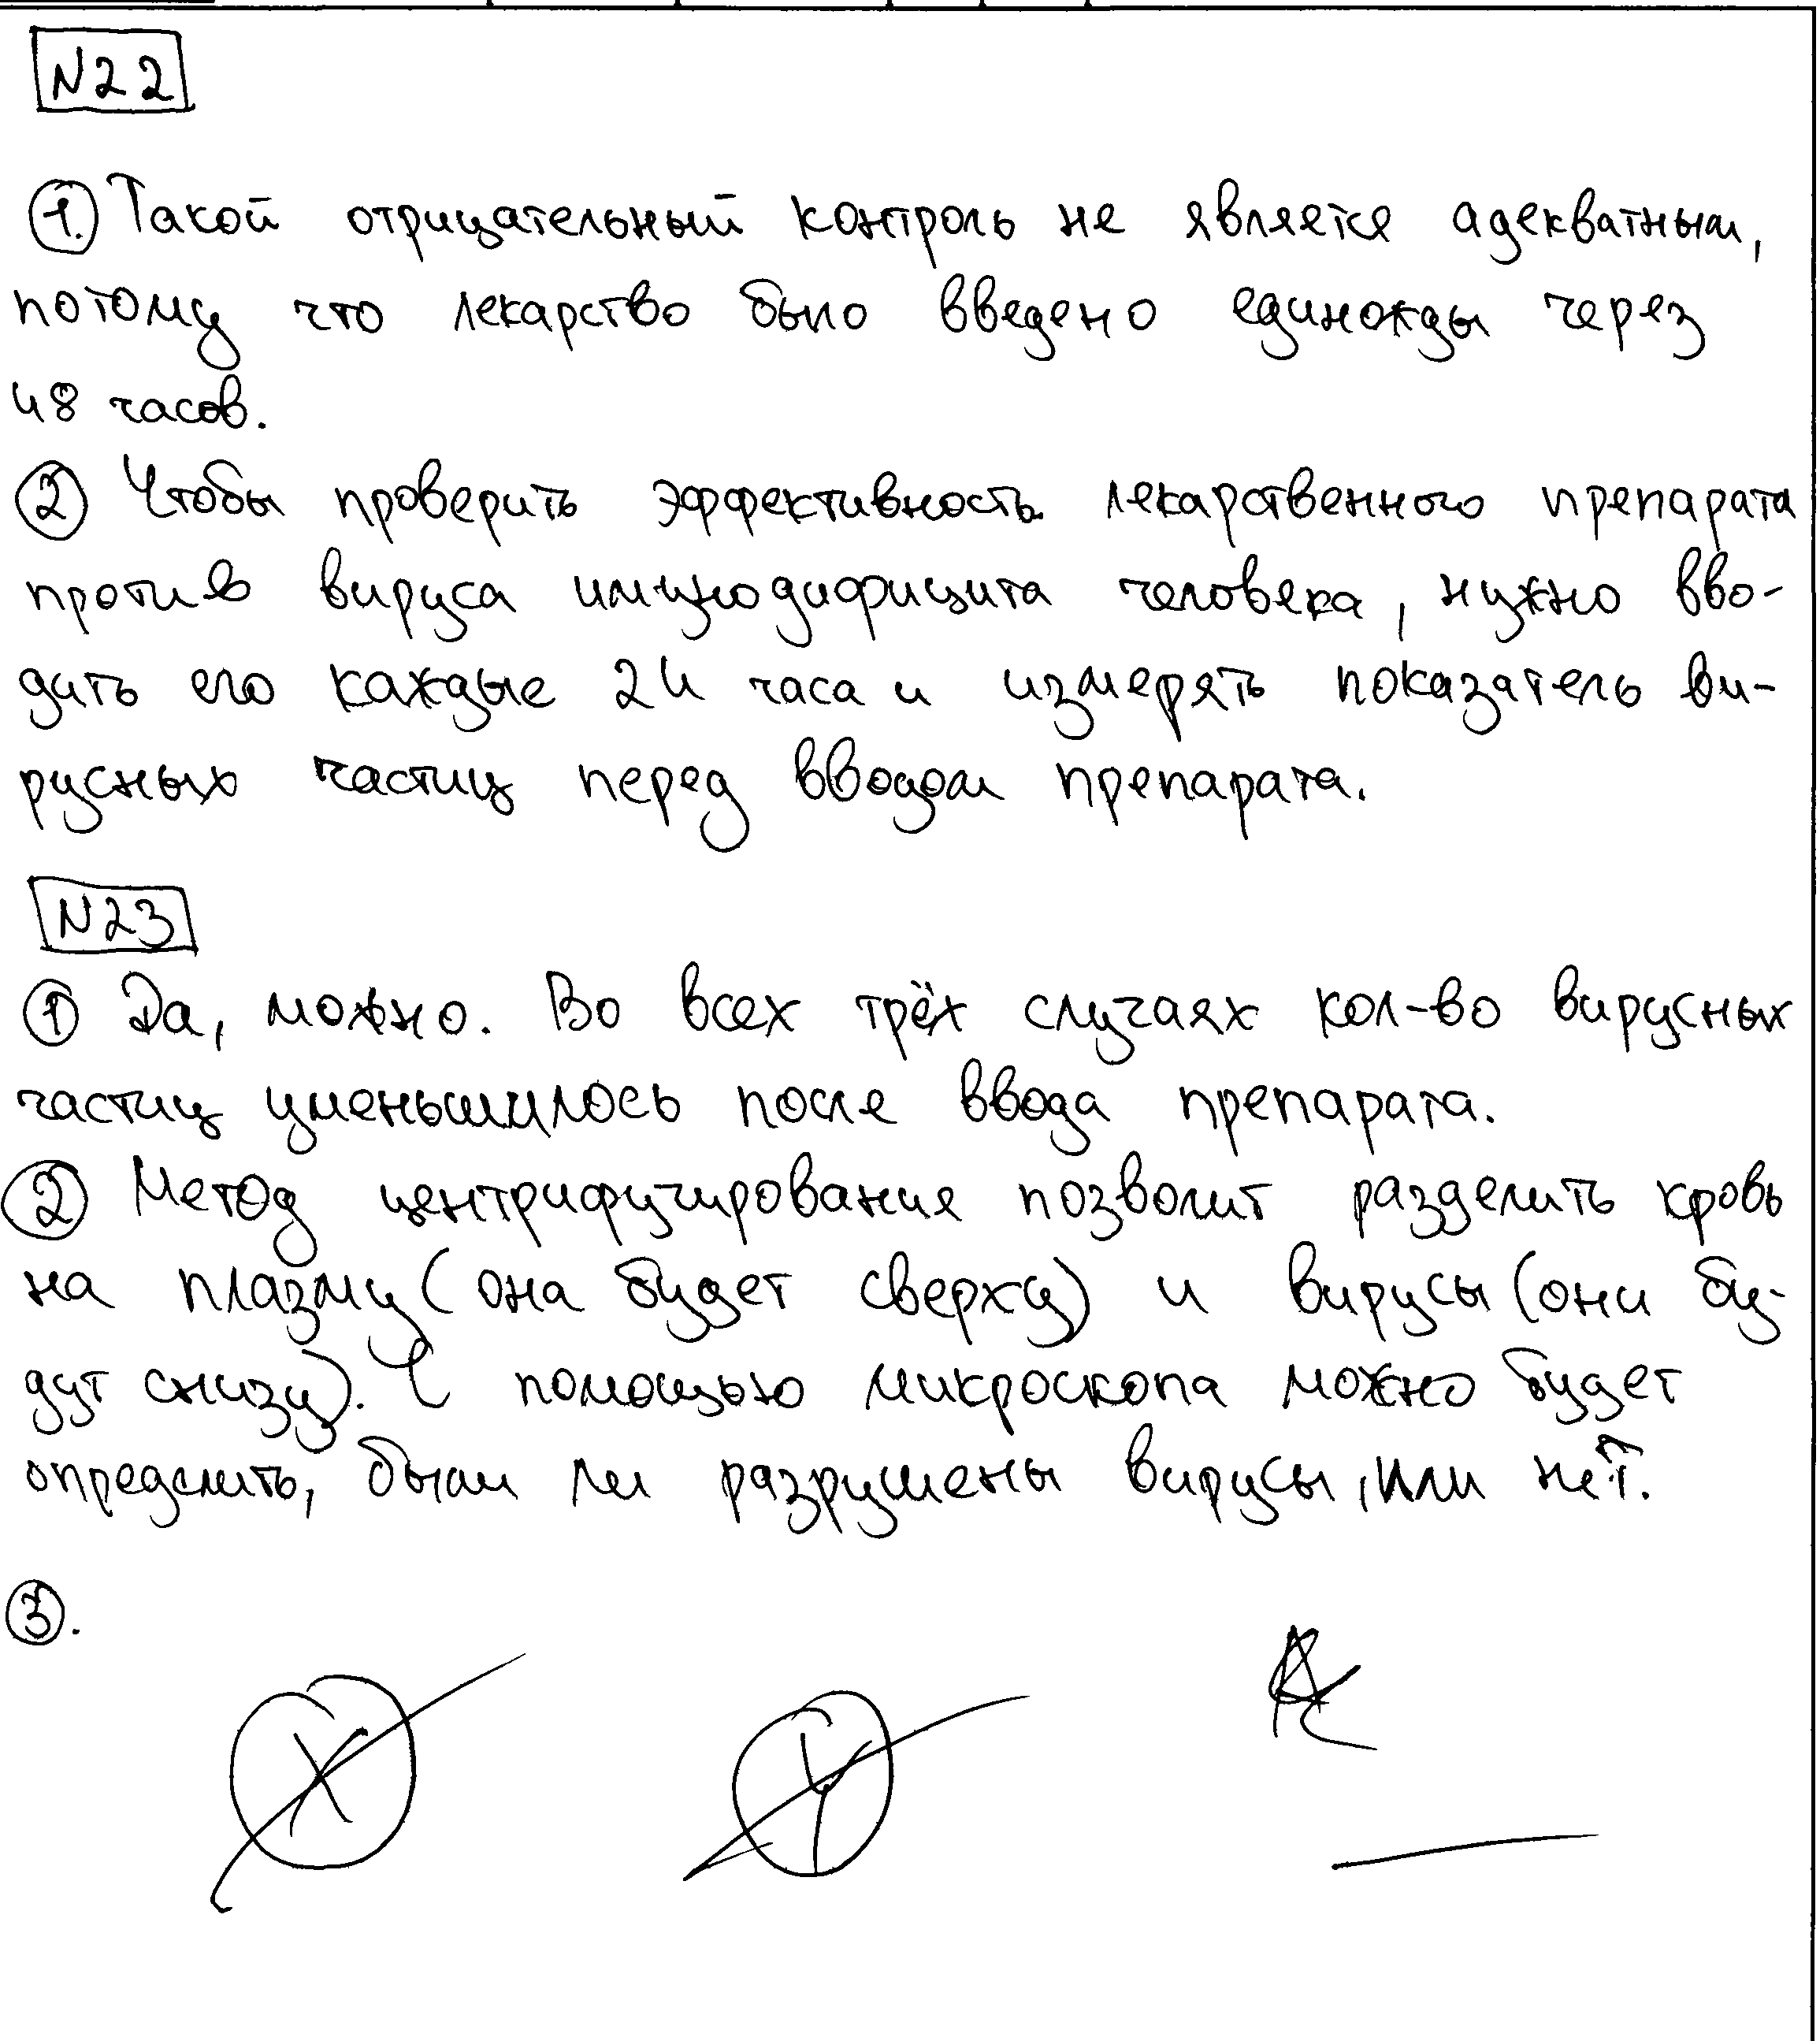 N22
1. Такой отрицательный контроль не является адекватным,
потому что лекарство было введено единожды через
48 часов.
2 Чтобы проверить эффективность лекарственного препарата
против вируса имунодифицита человека, нужно вво-
дить его каждые 24 часа и измерять показатель ви-
русных частиц перед вводом препарата.
N23
1 Да, можно. Во всех трёх случаях кол-во вирусных
частиц уменьшилось после ввода препарата.
2 Метод центрифугирования позволит разделить кровь
на плазму (она будет сверху) и вирусы (они бу-
дут снизу). С помощью микроскопа можно будет
определить, были ли разрушены вирусы, или нет.
3.
X Y